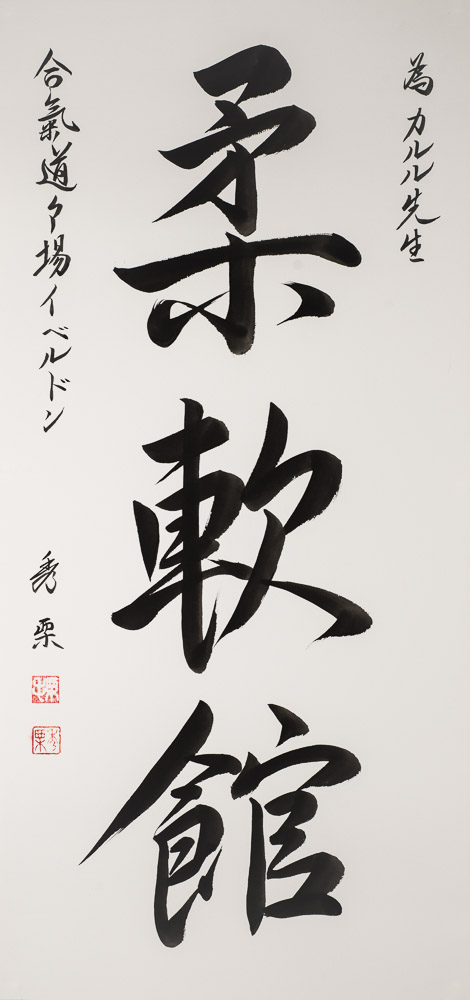 為カルル先生
柔軟館
合氣道夕場イベルドン
秀栗